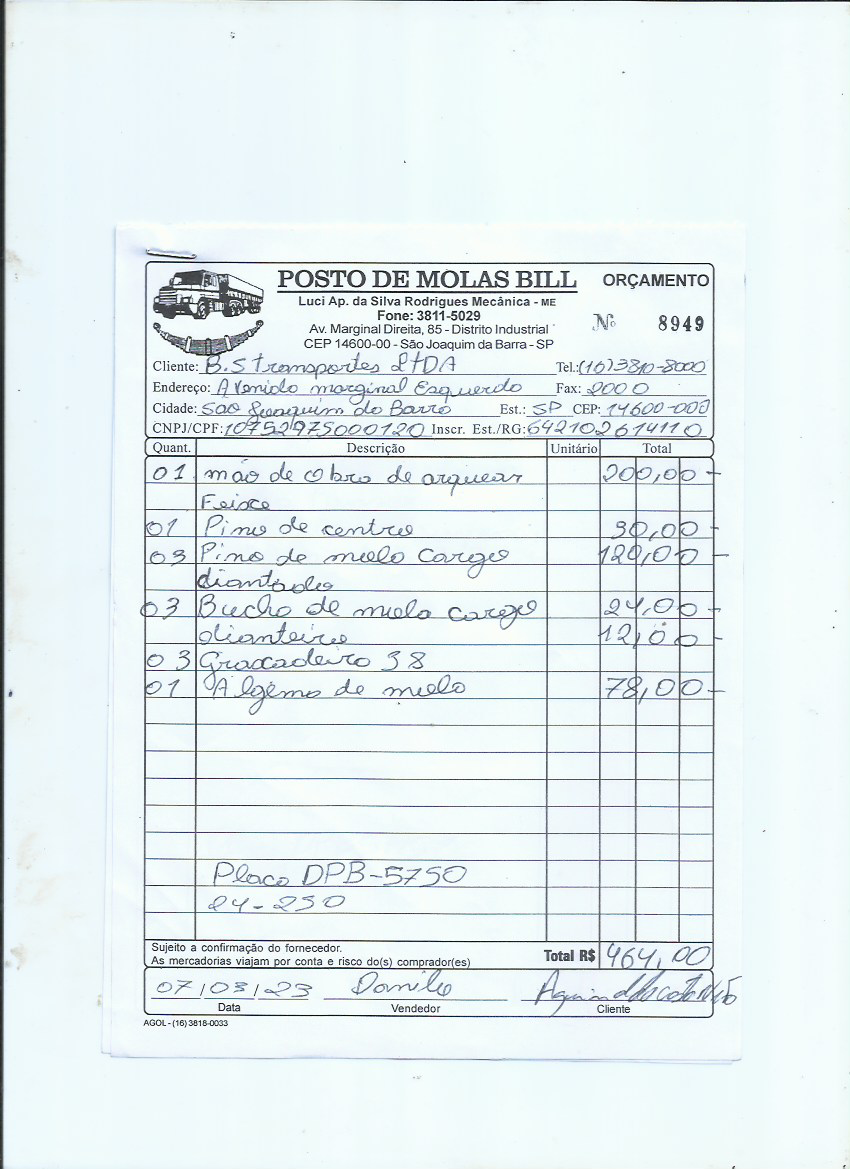 POSTO DE MOLAS BILL ORÇAMENTO
Luci Ap. da Silva Rodrigues Mecânica - ME
Fone: 3811-5029
Nº 8949
Av. Marginal Direita, 85 - Distrito Industrial
CEP 14600-00 - São Joaquim da Barra - SP
Cliente: B.S transportes LtDA Tel.: (16) 3810-8000
Endereço: Avenida marginal Esquerdo Fax: 2000
Cidade: São Joaquim da Barra Est.: SP CEP: 14600-000
CNPJ/CPF: 10752975000120 Inscr. Est./RG: 642102614110
Quant. Descrição Unitário Total
01 mão de obra de arquear 200,00 -
Feixe
01 Pino de centro 30,00 -
03 Pino de mola cargo 120,00 -
03 Bucha de mola cargo 24,00 -
dianteiro 12,00 -
03 Graxadeiro 38
01 Algema de mola 78,00 -
Placa DPB-5750
24-250
Sujeito a confirmação do fornecedor.
As mercadorias viajam por conta e risco do(s) comprador(es) Total R$ 464,00
07/03/23 Danilo
Data Vendedor Cliente
AGOL - (16) 3818-0033